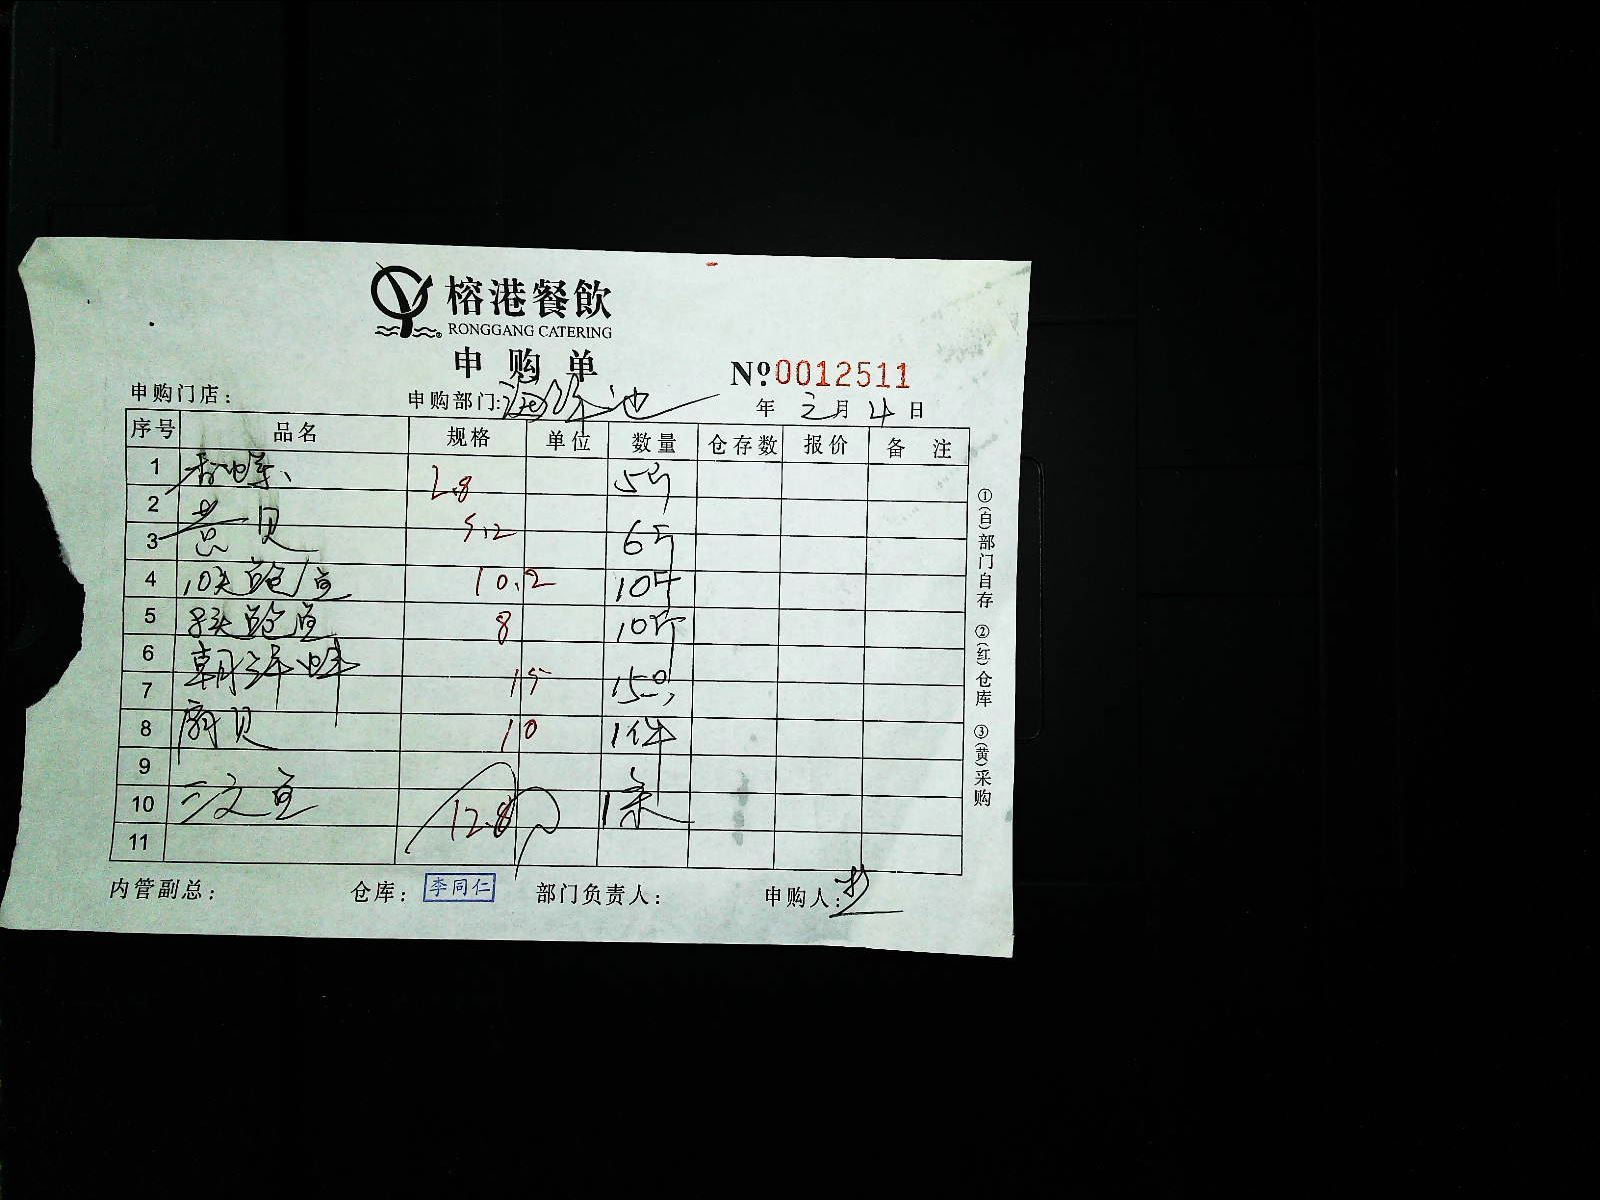 榕港餐飲
RONGGANG CATERING
申购单
No.0012511
申购门店： 申购部门: 海鲜池 年 三月 4 日
序号 品名 规格 单位 数量 仓存数 报价 备注
1 香螺 2.8 5斤
2
3 黄贝 5.2 6斤
4 10头鲍鱼 10.2 10斤
5 8头鲍鱼 8 10斤
6
7 朝洋蚌 15 15只
8 扇贝 10 1件
9
10 三文鱼 12.8 1条
11
内管副总： 仓库： 李同仁 部门负责人： 申购人：
①(白)部门自存 ②(红)仓库 ③(黄)采购